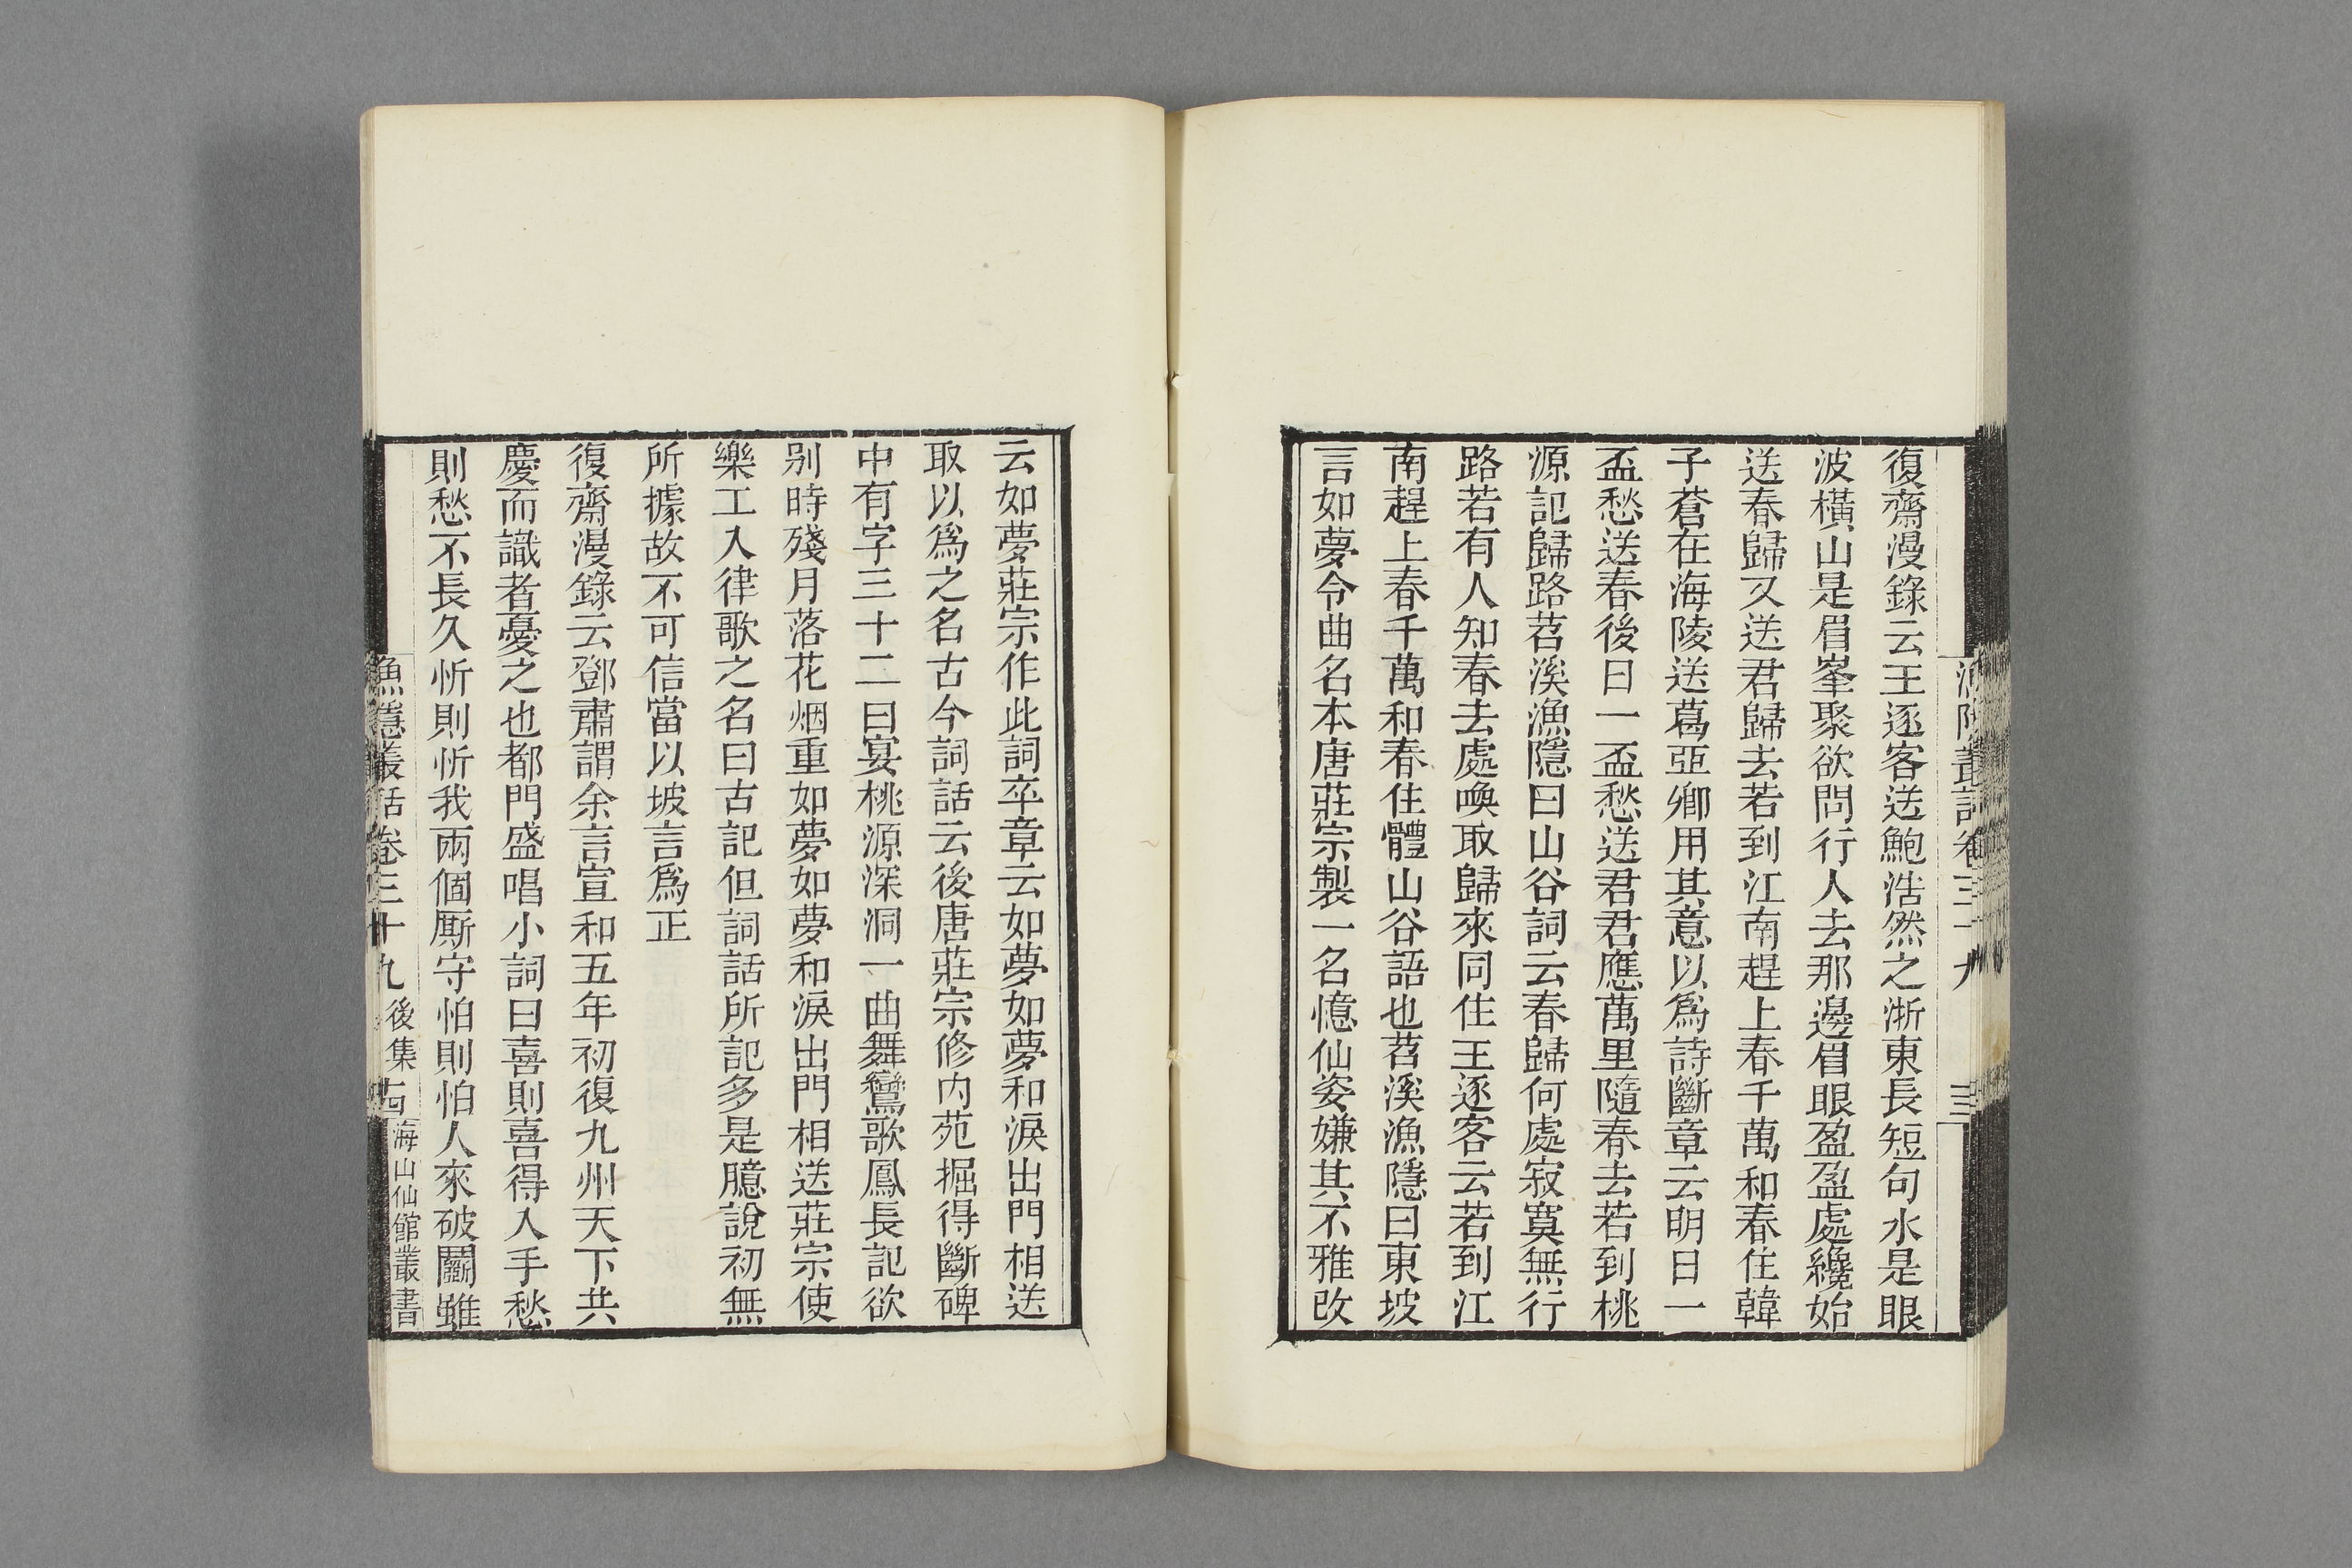 復齋漫錄云王逐客送鮑浩然之浙東長短句水是眼
波橫山是眉峯聚欲問行人去那邊眉眼盈盈處纔始
送春歸又送君歸去若到江南趕上春千萬和春住韓
子蒼在海陵送葛亞卿用其意以爲詩斷章云明日一
盃愁送春後日一盃愁送君君應萬里隨春去若到桃
源記歸路苕溪漁隱曰山谷詞云春歸何處寂寞無行
路若有人知春去處喚取歸來同住王逐客云若到江
南趕上春千萬和春住體山谷語也苕溪漁隱曰東坡
言如夢令曲名本唐莊宗製一名憶仙姿嫌其不雅改
云如夢莊宗作此詞卒章云如夢如夢和淚出門相送
取以爲之名古今詞話云後唐莊宗修内苑掘得斷碑
中有字三十二曰宴桃源深洞一曲舞鸞歌鳳長記欲
别時殘月落花烟重如夢如夢和淚出門相送莊宗使
樂工入律歌之名曰古記但詞話所記多是臆說初無
所據故不可信當以坡言爲正
復齋漫錄云鄧肅謂余言宣和五年初復九州天下共
慶而識者憂之也都門盛唱小詞曰喜則喜得入手愁
則愁不長久忻則忻我兩個厮守怕則怕人來破鬭雖
漁隱叢話卷三十九 後集 古 海山仙館叢書